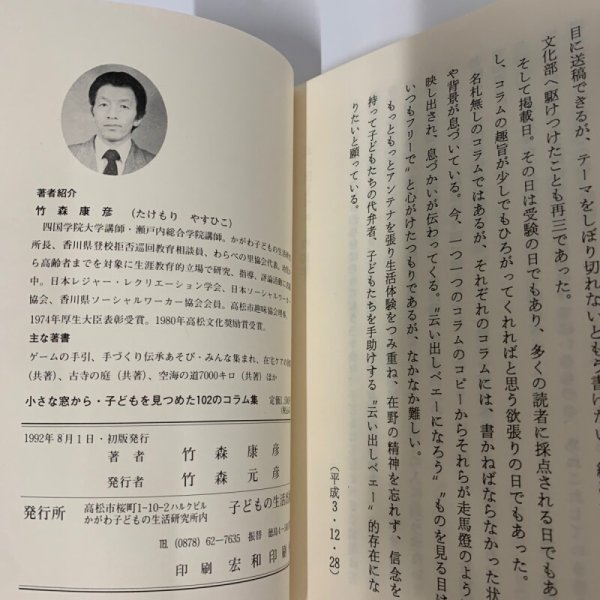 著者紹介
竹森康彦（たけもり やすひこ）
四国学院大学講師・瀬戸内総合学院講師。かがわ子どもの生活
所長、香川県登校拒否巡回教育相談員、わらべの里協会代表、
ら高齢者までを対象に生涯教育的立場で研究、指導、評論活動
中。日本レジャー・レクリエーション学会、日本ソーシャルワーカー
協会、香川県ソーシャルワーカー協会会員。高松市趣味協会
1974年厚生大臣表彰受賞。1980年高松文化奨励賞受賞。
主な著書
ゲームの手引、手づくり伝承あそび・みんな集まれ、在宅ケアの
（共著）、古寺の庭（共著）、空海の道7000キロ（共著）ほか
小さな窓から・子どもを見つめた102のコラム集
1992年8月1日・初版発行
著者 竹森康彦
発行者 竹森元彦
発行所 高松市桜町1-10-2ハルクビル
かがわ子どもの生活研究所内 子どもの生活
TEL (0878) 62-7635 振替 徳島4-
印刷 宏和印刷
目に送稿できるが、テーマをしぼり切れないともう書けない。
文化部へ駆けつけたことも再三であった。
そして掲載日。その日は受験の日でもあり、多くの読者に採点される日でもあ
し、コラムの趣旨が少しでもひろがってくれればと思う欲張りの日でもあった。
名札無しのコラムではあるが、それぞれのコラムには、書かねばならなかった状
や背景が息づいている。今、一つ一つのコラムのコピーからそれらが走馬燈のよう
映し出され、息づかいが伝わってくる。〝云い出しベエーになろう〟〝ものを見る目は
いつもフリーで〟と心がけたつもりであるが、なかなか難しい。
もっともっとアンテナを張り生活体験をつみ重ね、在野の精神を忘れず、信念を
持って子どもたちの代弁者、子どもたちを手助けする〝云い出しベエー〟的存在にな
りたいと願っている。
（平成3・12・28）